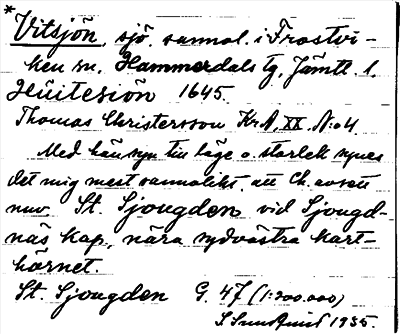 * Vitsjön, sjö, sannol. i Frostvi-
ken sn, Hammerdals tg, Jämtl. l.
1645.
Thomas Christersson Kr.A, XX, N:o 4
Med hänsyn till läge o. storlek synes
det mig mest sannolikt, att Ch. avsett
nuv. St. Sjougden vid Sjougd-
näs kap., nära sydvästra kart-
hörnet.
St. Sjougden G. 47 (1:200.000)
1935